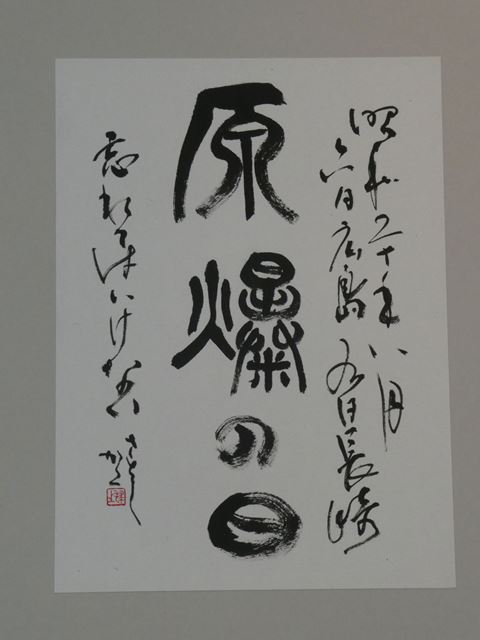 昭和二十年八月
六日広島 九日長崎
原爆の日
忘れてはいけない
さとし
かく